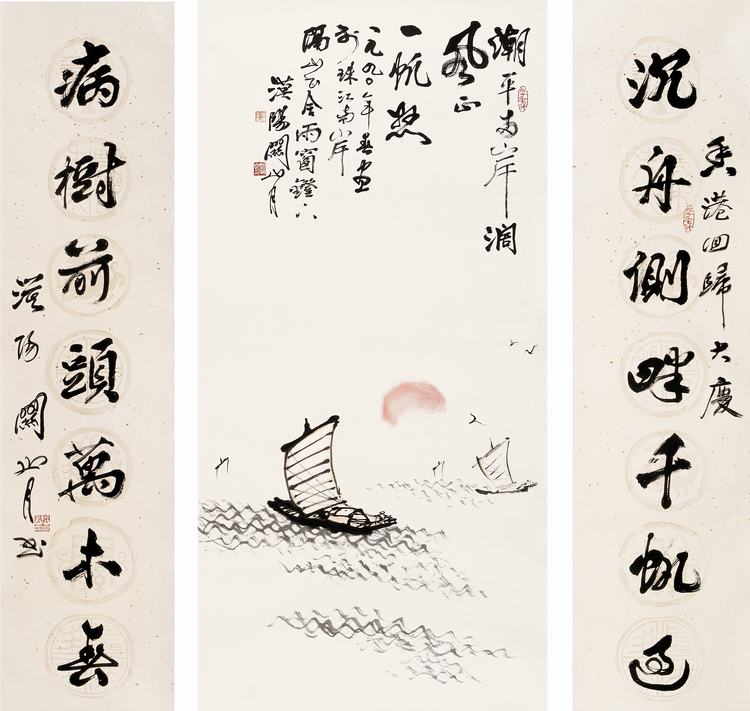 香港回歸大慶
沉舟側畔千帆過
潮平両岸濶
風正
一帆懸
一九九〇年春畫
於珠江南岸
隔山書舍雨窗鐙下
漠陽關山月
病樹前頭萬木春
漠陽關山月書